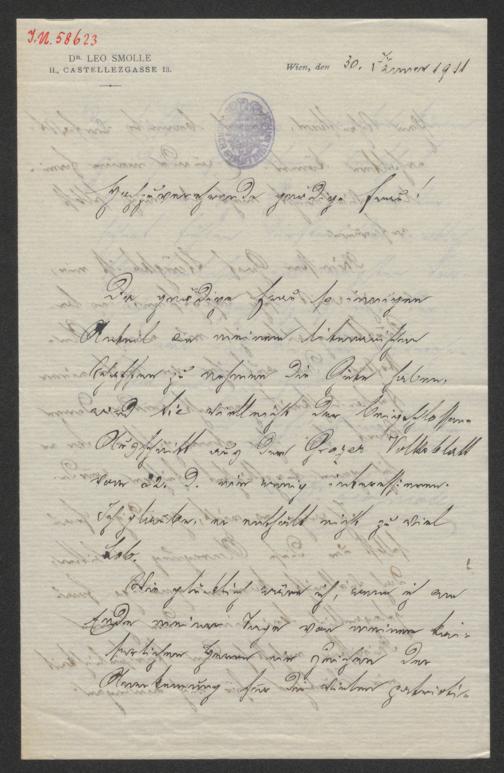 I.N. 58623
DR. LEO SMOLLE
II., CASTELLEZGASSE 13.
Wien, den 30. Jänner 1911
Hochzuverehrende gnädige Frau!
Da gnädige Frau so innigen
Anteil an meinem literarischen
Schaffen zu nehmen die Güte haben,
wird Sie vielleicht der beigeschlossene
Ausschnitt aus dem Grazer Volksblatt
vom 22. d. ein wenig interessieren.
Ich glaube, er enthält nicht zu viel
Lob.
Wie glücklich wäre ich, wenn ich am
Ende meiner Tage von meinem kai-
serlichen Herrn ein Zeichen der
Anerkennung für die vielen patrioti-